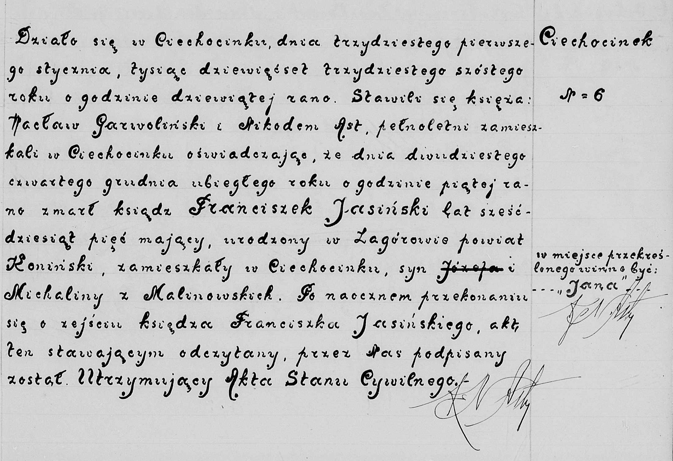 Działo się w Ciechocinku, dnia trzydziestego pierwsze-
go stycznia, tysiąc dziewięćset trzydziestego szóstego
roku o godzinie dziewiątej rano. Stawili się księża:
Wacław Garwoliński i Nikodem Ast, pełnoletni zamiesz-
kali w Ciechocinku oświadczając, że dnia dwudziestego
czwartego grudnia ubiegłego roku o godzinie piątej ra-
no zmarł ksiądz Franciszek Jasiński lat sześć-
dziesiąt pięć mający, urodzony w Zagórowie powiat
Koniński, zamieszkały w Ciechocinku, syn Józefa i
Michaliny z Malinowskich. Po naocznem przekonaniu
się o zejściu księdza Franciszka Jasińskiego, akt
ten stawającym odczytany, przez Nas podpisany
został. Utrzymujący Akta Stanu Cywilnego.
Ciechocinek
N = 6
w miejsce przekreś-
lonego winno być:
---"Jana"